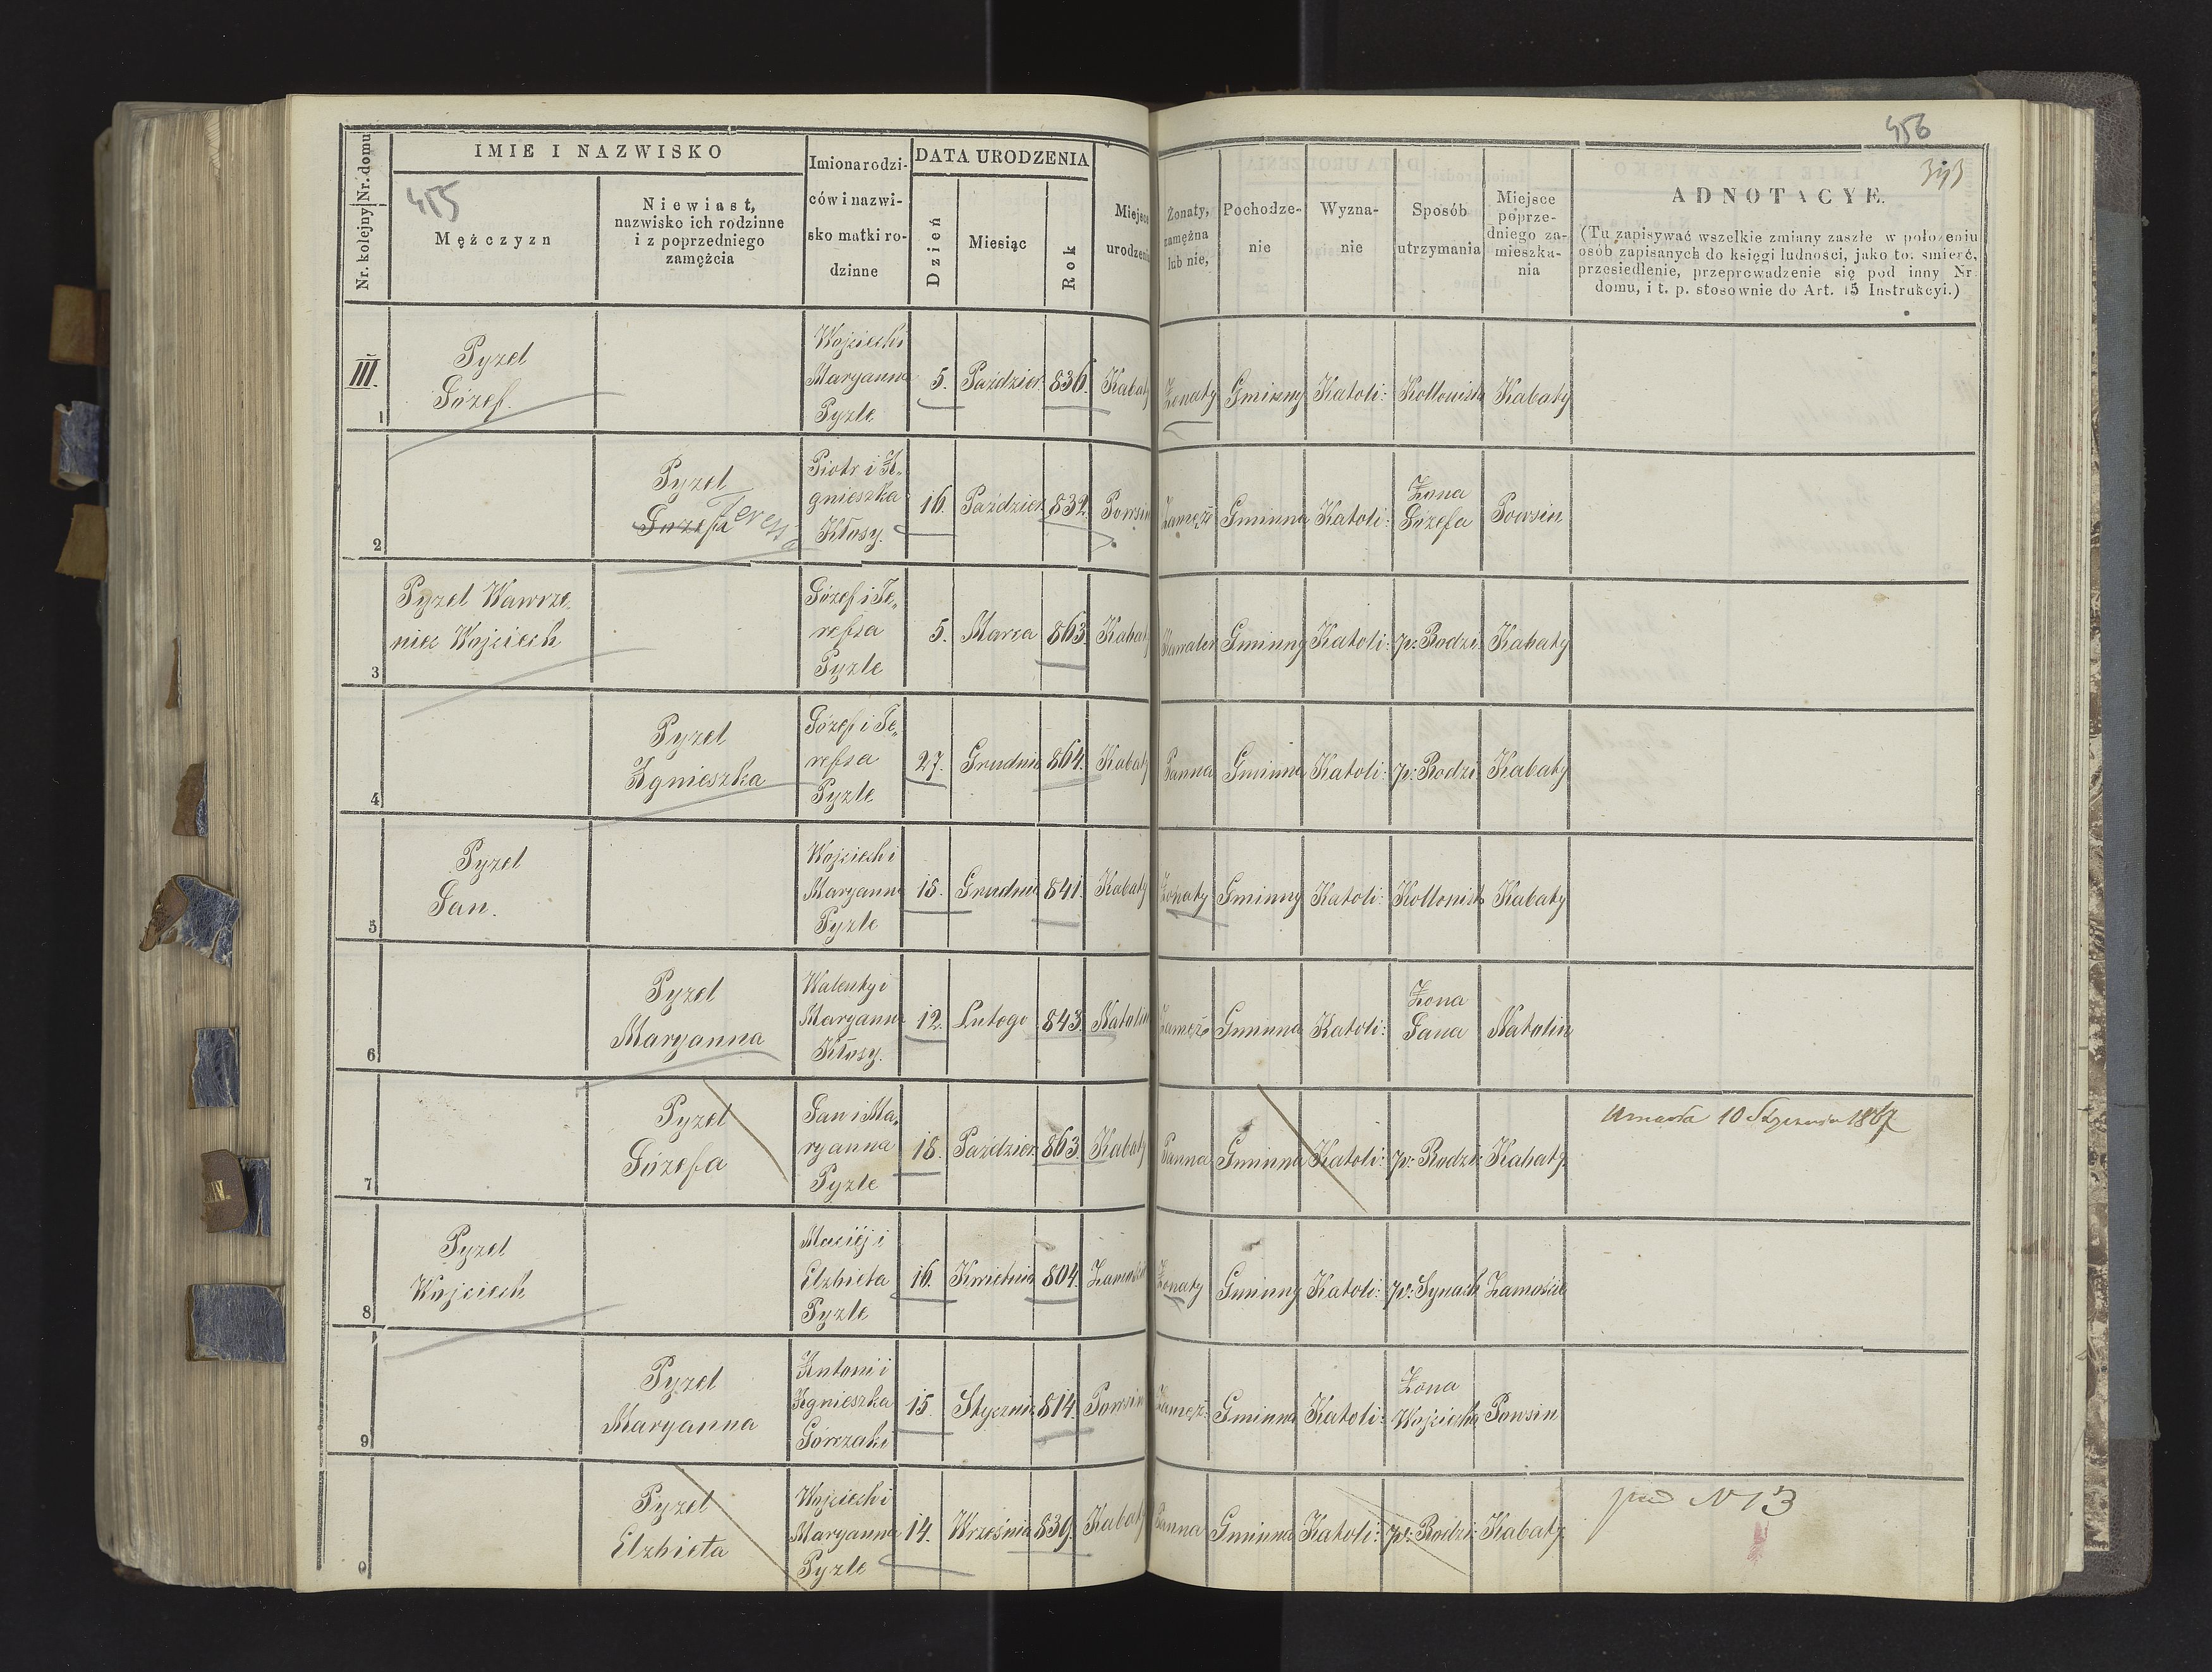 456
393
Nr. kolejny Nr. domu
IMIE I NAZWISKO
455
Mężczyzn
Niewiast,
nazwisko ich rodzinne
i z poprzedniego
zamężcia
Imiona rodzi-
ców i nazwi-
sko matki ro-
dzinne
DATA URODZENIA
Dzień
Miesiąc
Rok
Miejsce
urodzenia
Żonaty,
zamężna
lub nie,
Pochodze-
nie
Wyzna-
nie
Sposób
utrzymania
Miejsce
poprze-
dniego za-
mieszka-
nia
ADNOTACYE.
(Tu zapisywać wszelkie zmiany zaszłe w położeniu
osób zapisanych do księgi ludności, jako to. śmierć,
przesiedlenie, przeprowadzenie się pod inny Nr.
domu, i t. p. stosownie do Art. 15 Instrukcyi.)
III.
1
Pyzel
Józef.
Wojciech i
Maryanna
Pyzle
5. Paździer. 836. Kabaty Żonaty Gminny Katoli: Kollonista Kabaty
2
Pyzel
Józefa Teressa
Piotr i A„
gnieszka
Kłosy.
16. Paździer. 832. Powsin Zamęż: Gminna Katoli:
Żona
Józefa
Powsin
3
Pyzel Wawrze„
niec Wojciech
Józef i Te„
ressa
Pyzle
5. Marca 863. Kabaty Kawaler Gminny Katoli: p: Rodzi: Kabaty
4
Pyzel
Agnieszka
Józef i Te„
ressa
Pyzle
27. Grudnia 864. Kabaty Panna Gminna Katoli: p: Rodzi: Kabaty
5
Pyzel
Jan.
Wojciech i
Maryanna
Pyzle
15. Grudnia 841. Kabaty Żonaty Gminny Katoli: Kollonista Kabaty
6
Pyzel
Maryanna
Walenty i
Maryanna
Kłosy.
12. Lutego 843. Natolin Zamęż: Gminna Katoli:
Żona
Jana
Natolin
7
Pyzel
Józefa
Jan i Ma„
ryanna
Pyzle
18. Paździer. 863. Kabaty Panna Gminna Katoli: p: Rodzi: Kabaty
Umarła 10 Stycznia 1867
8
Pyzel
Wojciech
Maciéj i
Elzbieta
Pyzle
16. Kwietnia 804. Zamoście Żonaty Gminny Katoli: p: Synach Zamoście
9
Pyzel
Maryanna
Antoni i
Agnieszka
Górczaki
15. Stycznia 814. Powsin Zamęż: Gminna Katoli:
Żona
Wojciecha
Powsin
0
Pyzel
Elzbieta
Wojciech i
Maryanna
Pyzle
14. Września 839. Kabaty Panna Gminna Katoli: p: Rodzi: Kabaty
pod N 13